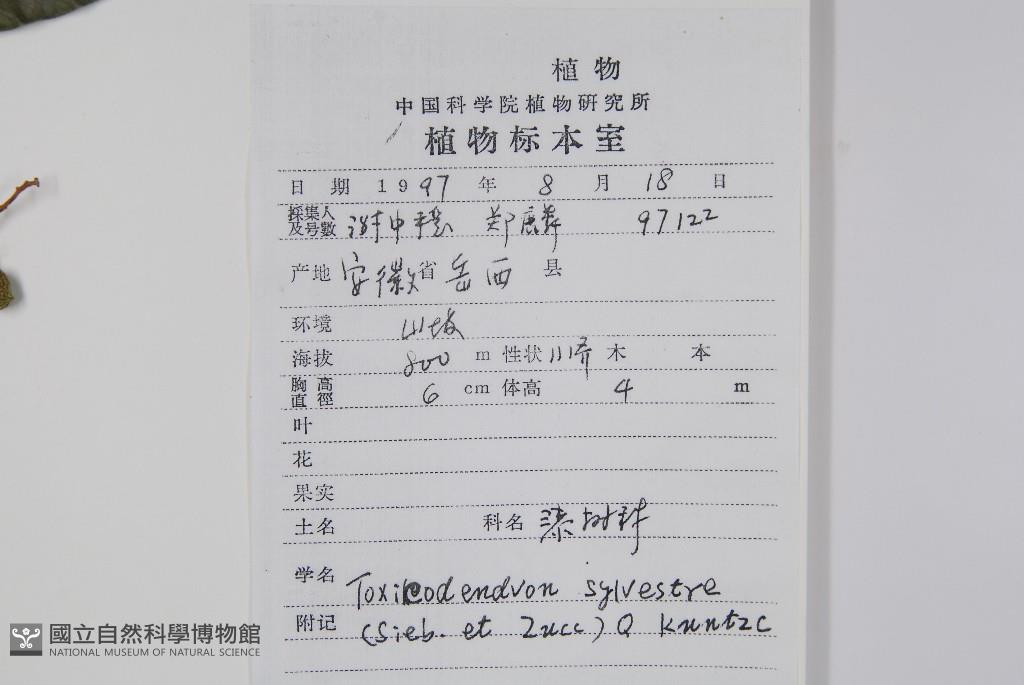 植物
中国科学院植物研究所
植物标本室
日期 1997 年 8 月 18 日
採集人及号數 谢中稳 郑麟 97122
产地 安徽省岳西县
环境 山坡
海拔 800 m 性状 木 本
胸高直徑 6 cm 体高 4 m
叶
花
果实
土名 科名 漆树科
学名 Toxicodendron sylvestre
附记 (Sieb. et Zucc) O Kuntzc
國立自然科學博物館
NATIONAL MUSEUM OF NATURAL SCIENCE